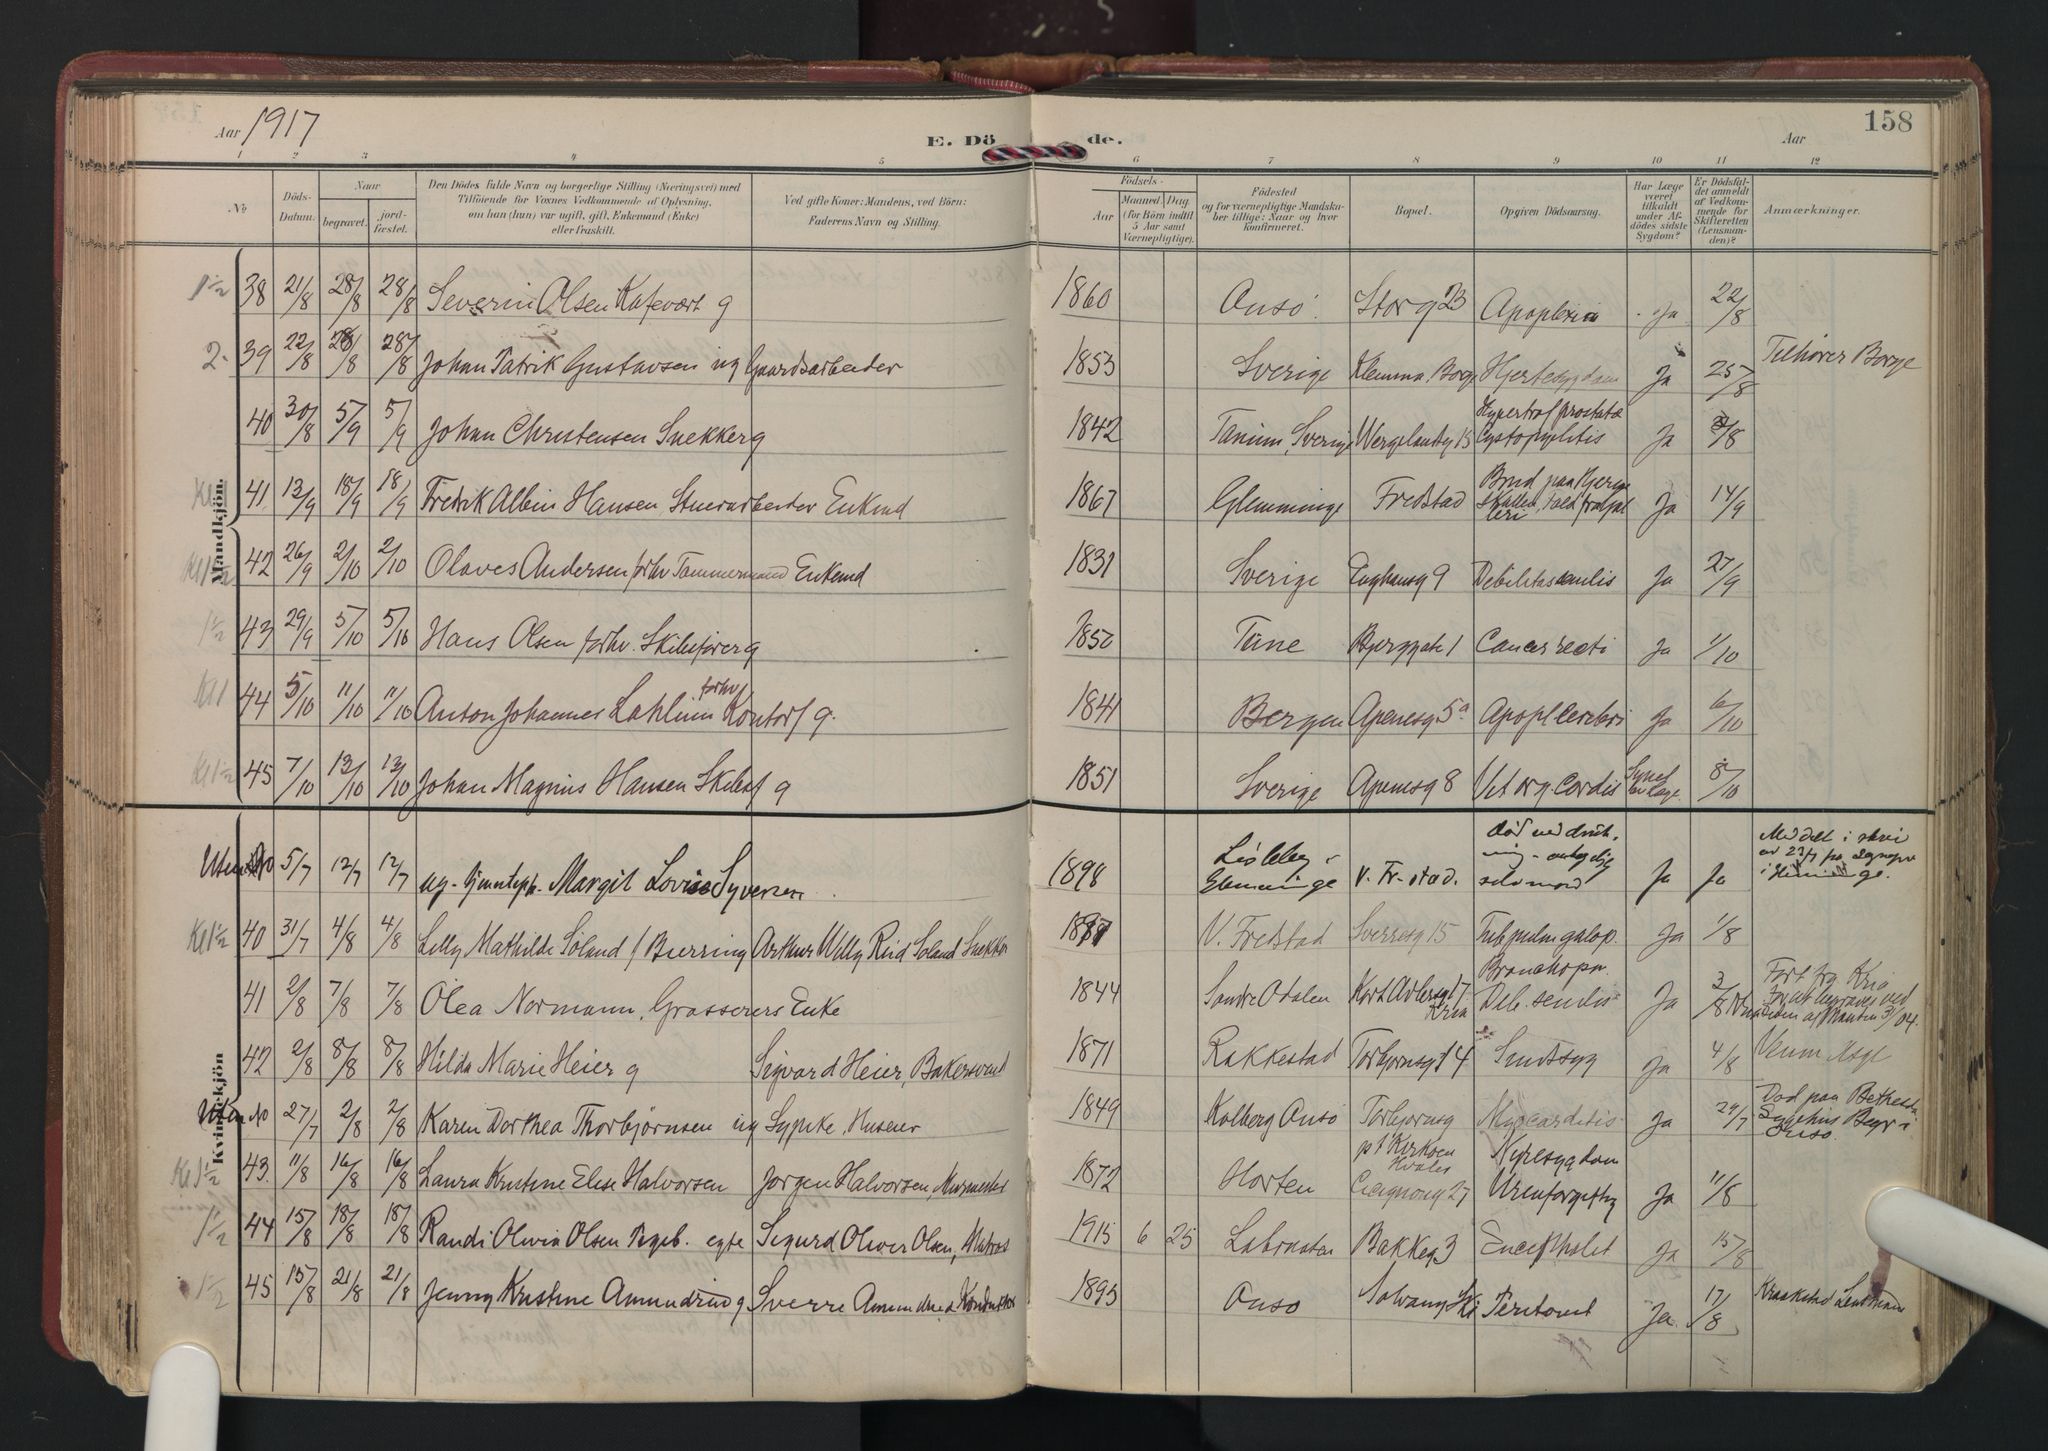 158
Aar 1917
E. Dö de.
Aar
1 2 3 4 5 6 7 8 9 10 11 12
No
Döds-Datum.
Naar
begravet.
jord-fæstet.
Den Dödes fulde Navn og borgerlige Stilling (Næringsvei) med
Tilföiende for Voxnes Vedkommende af Oplysning,
om han (hun) var ugift, gift, Enkemand (Enke)
eller fraskilt.
Ved gifte Koner: Mandens, ved Börn:
Faderens Navn og Stilling.
Födsels-
Aar
Maaned
Dag
(for Börn indtil
5 Aar samt
Værnepligtige).
Födested
og for værnepligtige Mandska-
ber tillige: Naar og hvor
konfirmeret.
Bopæl.
Opgiven Dödsaarsag.
Har Læge
været
tilkaldt
under Af-
dödes sidste
Sygdom?
Er Dödsfal-
det anmeldt
af Vedkom-
mende for
Skifteretten
(Lensman-
den)?
Anmærkninger.
Mandkjön.
1½ 38 21/8 28/8 28/8 Severin Olsen Kafevært g 1860 Onsö Storg 23 Apoplexia Ja 22/8
2. 39 22/8 28/8 28/8 Johan Patrik Gustavsen ug Gaardsarbeider 1853 Sverige Klemma, Borge Hjertesygdom Ja 25/8 Tilhører Borge
40 30/8 5/9 5/9 Johan Christensen Snekker g 1842 Tanum, Sverige Wergelandsg 15 Hypertrof prostatæ Ja
41 13/9 18/9 18/9 Fredrik Albin Hansen, Stuerarbeider Enkmd 1867 Glemminge Fredstad Brud paa Ja 14/9
Kl 1½ 42 26/9 2/10 2/10 Olaves Andersen forhv Tømmermand Enkemd 1831 Sverige Enghausg 9 Debilitas senilis Ja 27/9
1½ 43 29/9 5/10 5/10 Hans Olsen forhv. Skibsfører g 1850 Tune Bjerggate 1 Cancer recti Ja 1/10
Kl 1 44 5/10 11/10 11/10 Anton Johannes Lahlum forhv Kontorf g. 1841 Bergen Apenesg 5a Apopl. cerebri Ja 6/10
Kl 1½ 45 7/10 13/10 13/10 Johan Magnus Hansen Skibsf g 1851 Sverige Apenesg 8 Vit org. cordis 8/10
Kvindekjön
Uten No 5/7 12/7 12/7 ug. Margit Lovise Syversen 1898 Lisleby i Glemminge V. Fr-stad. død ved drukning - selvmord Ja Ja
Kl 1½ 40 31/7 4/8 4/8 Lilly Mathilde Söland f Bierring Arthur Willy Reid Söland Snekker V. Fredstad Sverresg 15 Ja 1/8
41 2/8 7/8 7/8 Olea Normann, Grosserers Enke 1844 Søndre Odalen Kria Bronchopn. Deb. senilis Ja 3/8
42 2/8 8/8 8/8 Hilda Marie Heier g Sigvard Heier, Bakersvend 1871 Rakkestad Torbjornsgt 4 Sindssyg Ja 4/8
Uten No 27/7 2/8 2/8 Karen Dorthea Thorbjørnsen ug Sypike, Huseier 1849 Kolberg Onsö Torbjornsg Myocarditis Ja Död paa Bethesda
Kl 1½ 43. 11/8 16/8 16/8 Laura Kristine Elise Halvorsen Jørgen Halvorsen, Murmester 1872 Horten Nyresygdom Urinforgiftng Ja 11/8
1½ 44 15/8 18/8 18/8 Randi Olivia Olsen Pigeb. egte Sigurd Oliver Olsen, Matros 1915 6 25 Labraaten Bakkeg 3 Encephalit Ja 15/8
1½ 45 15/8 21/8 21/8 Jenny Kristine Amundsen g Sverre Amundsen Konduktør 1895 Onsö Solvang Ski Peritonit Ja. 17/8 Kraakstad Lensmand